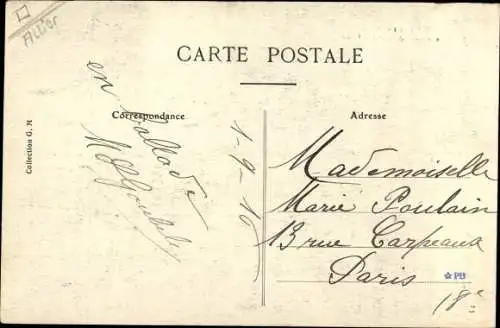 Allier
CARTE POSTALE
Correspondance
Adresse
Collection G. M
en ballade
1-9-10
Mademoiselle
Marie Poulain
13 rue Carpeaux
Paris
18e
PB